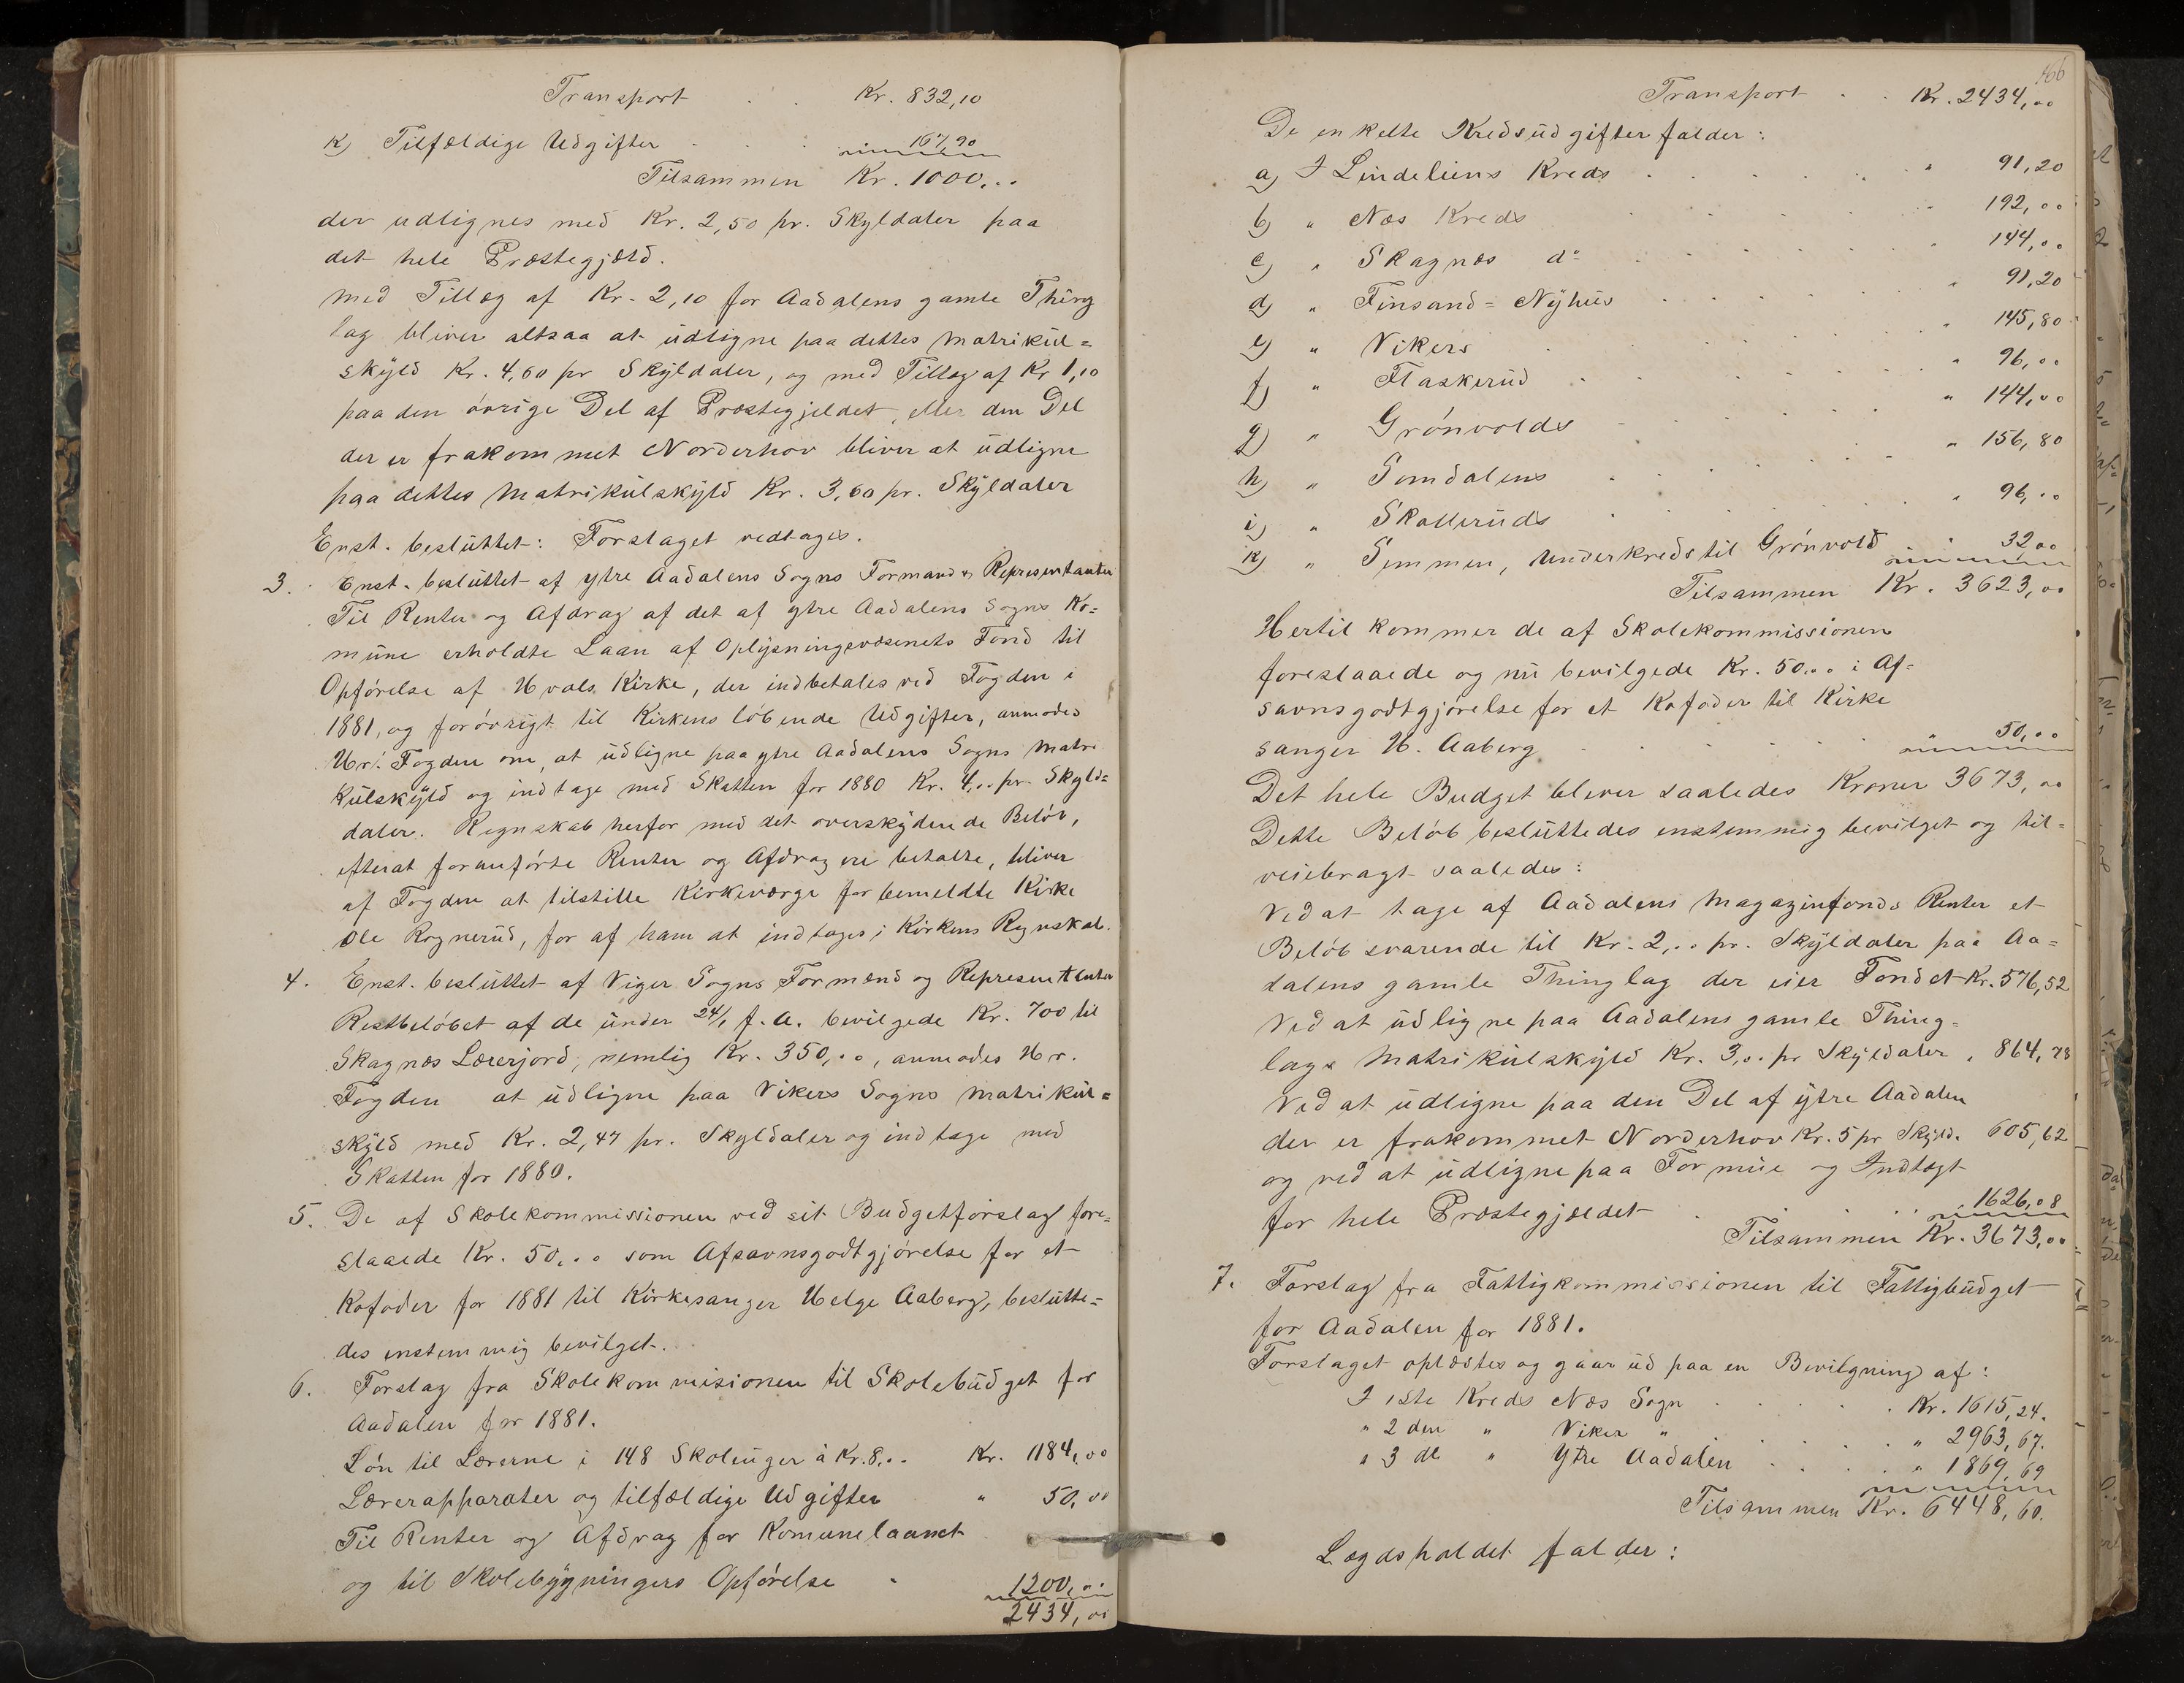 Transport . . Kr. 832,10
k) Tilfældige Udgifter . . . 167,90
Tilsammen Kr. 1000,00
der udlignes med Kr. 2,50 pr. Skyldaler paa
det hele Præstegjæld.
Med Tillæg af Kr. 2,10 for Aadalens gamle Thing
lag bliver altsaa at udligne paa dettes Matrikul=
skyld Kr. 4,60 pr Skyldaler, og med Tillæg af Kr 1,10
paa den øvrige Del af Præstegjeldet, eller den Del
der er frakommet Norderhov bliver at udligne
paa dettes Matrikulskyld Kr. 3,60 pr. Skyldaler
Enst. besluttet: Forslaget vedtages.
3. Enst. besluttet af ytre Aadalens Sogns Formænd & Representanter
Til Renter og Afdrag af det af ytre Aadalens Sogns Ko=
mune erholdte Laan af Oplysningsvæsenets Fond til
Opførelse af Hvals Kirke, der indbetales ved Fogden i
1881, og forøvrigt til Kirkens løbende Udgifter, anmodes
Hr. Fogden om, at udligne paa ytre Aadalens Sogns Matri
kulskyld og indtage med Skatten for 1880 Kr. 4,00 pr. Skyld=
daler. Regnskab herfor med det overskydende Beløb,
efterat foranførte Renter og Afdrag ere betalte, bliver
af Fogden at tilstille Kirkeværge for bemeldte Kirke
Ole Rognerud, for af ham at indtages i Kirkens Regnskab.
4. Enst. besluttet af Viger Sogns Formænd og Representanter
Restbeløbet af de under 24/1 f. A. bevilgede Kr. 700 til
Skagnæs Lærerjord, nemlig Kr. 350,00, anmodes Hr.
Fogden at udligne paa Vikers Sogns Matrikul=
skyld med Kr. 2,47 pr. Skyldaler og indtage med
Skatten for 1880.
5. De af Skolekommissionen ved sit Budgetforslag fore=
slaaede Kr. 50,00 som Afsavnsgodtgjørelse for et
Kofoder for 1881 til Kirkesanger Helge Aaberg, beslutte=
des enstemmig bevilget.
6. Forslag fra Skolekommisionen til Skolebudget for
Aadalen for 1881.
Løn til Lærerne i 148 Skoleuger à Kr. 8,00 Kr. 1184,00
Lærerapparater og tilfældige Udgifter " 50,00
Til Renter og Afdrag for Komunelaanet
og til Skolebygningers Opførelse " 1200,00
2434,00
166
Transport . . Kr. 2434,00
De enkelte Kredsudgifter falder:
a) I Lindeliens Kreds . . . . " 91,20
b) " Næs Kreds . . . . " 192,00
c) " Skagnæs do . . . . " 144,00
d) " Finsand=Nyhus . . . . " 91,20
e) " Vikers . . . . " 145,80
f) " Flaskerud . . . . " 96,00
g) " Grønvolds . . . . " 144,00
h) " Somdalens . . . . " 156,80
i) " Skolleruds . . . . " 96,00
k) " Semmen, Underkreds til Grønvold . " 32,00
Tilsammen Kr. 3623,00
Hertil kommer de af Skolekommissionen
foreslaaede og nu bevilgede Kr. 50,00 i Af=
savnsgodtgjørelse for et Kofoder til Kirke
sanger H. Aaberg . . . . " 50,00
Det hele Budget bliver saaledes Kroner 3673,00
Dette Beløb besluttedes enstemmig bevilget og til=
veiebragt saaledes:
Ved at tage af Aadalens Magazinfonds Renter et
Beløb svarende til Kr. 2,00 pr. Skyldaler paa Aa=
dalens gamle Thinglag der eier Fondet Kr. 576,52
Ved at udligne paa Aadalens gamle Thing=
lags Matrikulskyld Kr. 3,00 pr Skyldaler " 864,78
Ved at udligne paa den Del af ytre Aadalen
der er frakommet Norderhov Kr. 5 pr Skyld. 605,62
og ved at udligne paa Formue og Indtægt
for hele Præstegjældet . . . . 1626,08
Tilsammen Kr. 3673,00
7. Forslag fra Fattigkommissionen til Fattigbudget
for Aadalen for 1881.
Forslaget oplæstes og gaar ud paa en Bevilgning af:
I 1ste Kreds Næs Sogn . . . . Kr. 1615,24.
" 2den " Viker " . . . . " 2963,67.
" 3de " Ytre Aadalen . . . . " 1869,69
Tilsammen Kr. 6448,60.
Lægdsholdet falder: